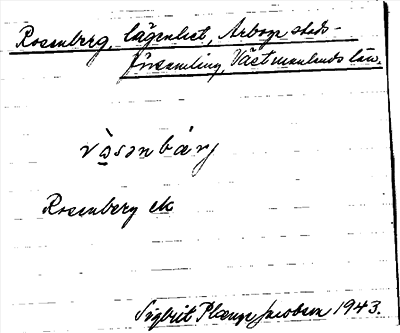 Rosenberg, lägenhet, Arboga stads-
församling, Västmanlands län.
ròsənbærj
Rosenberg ek
Sigbrit Plænge Jacobson 1943.